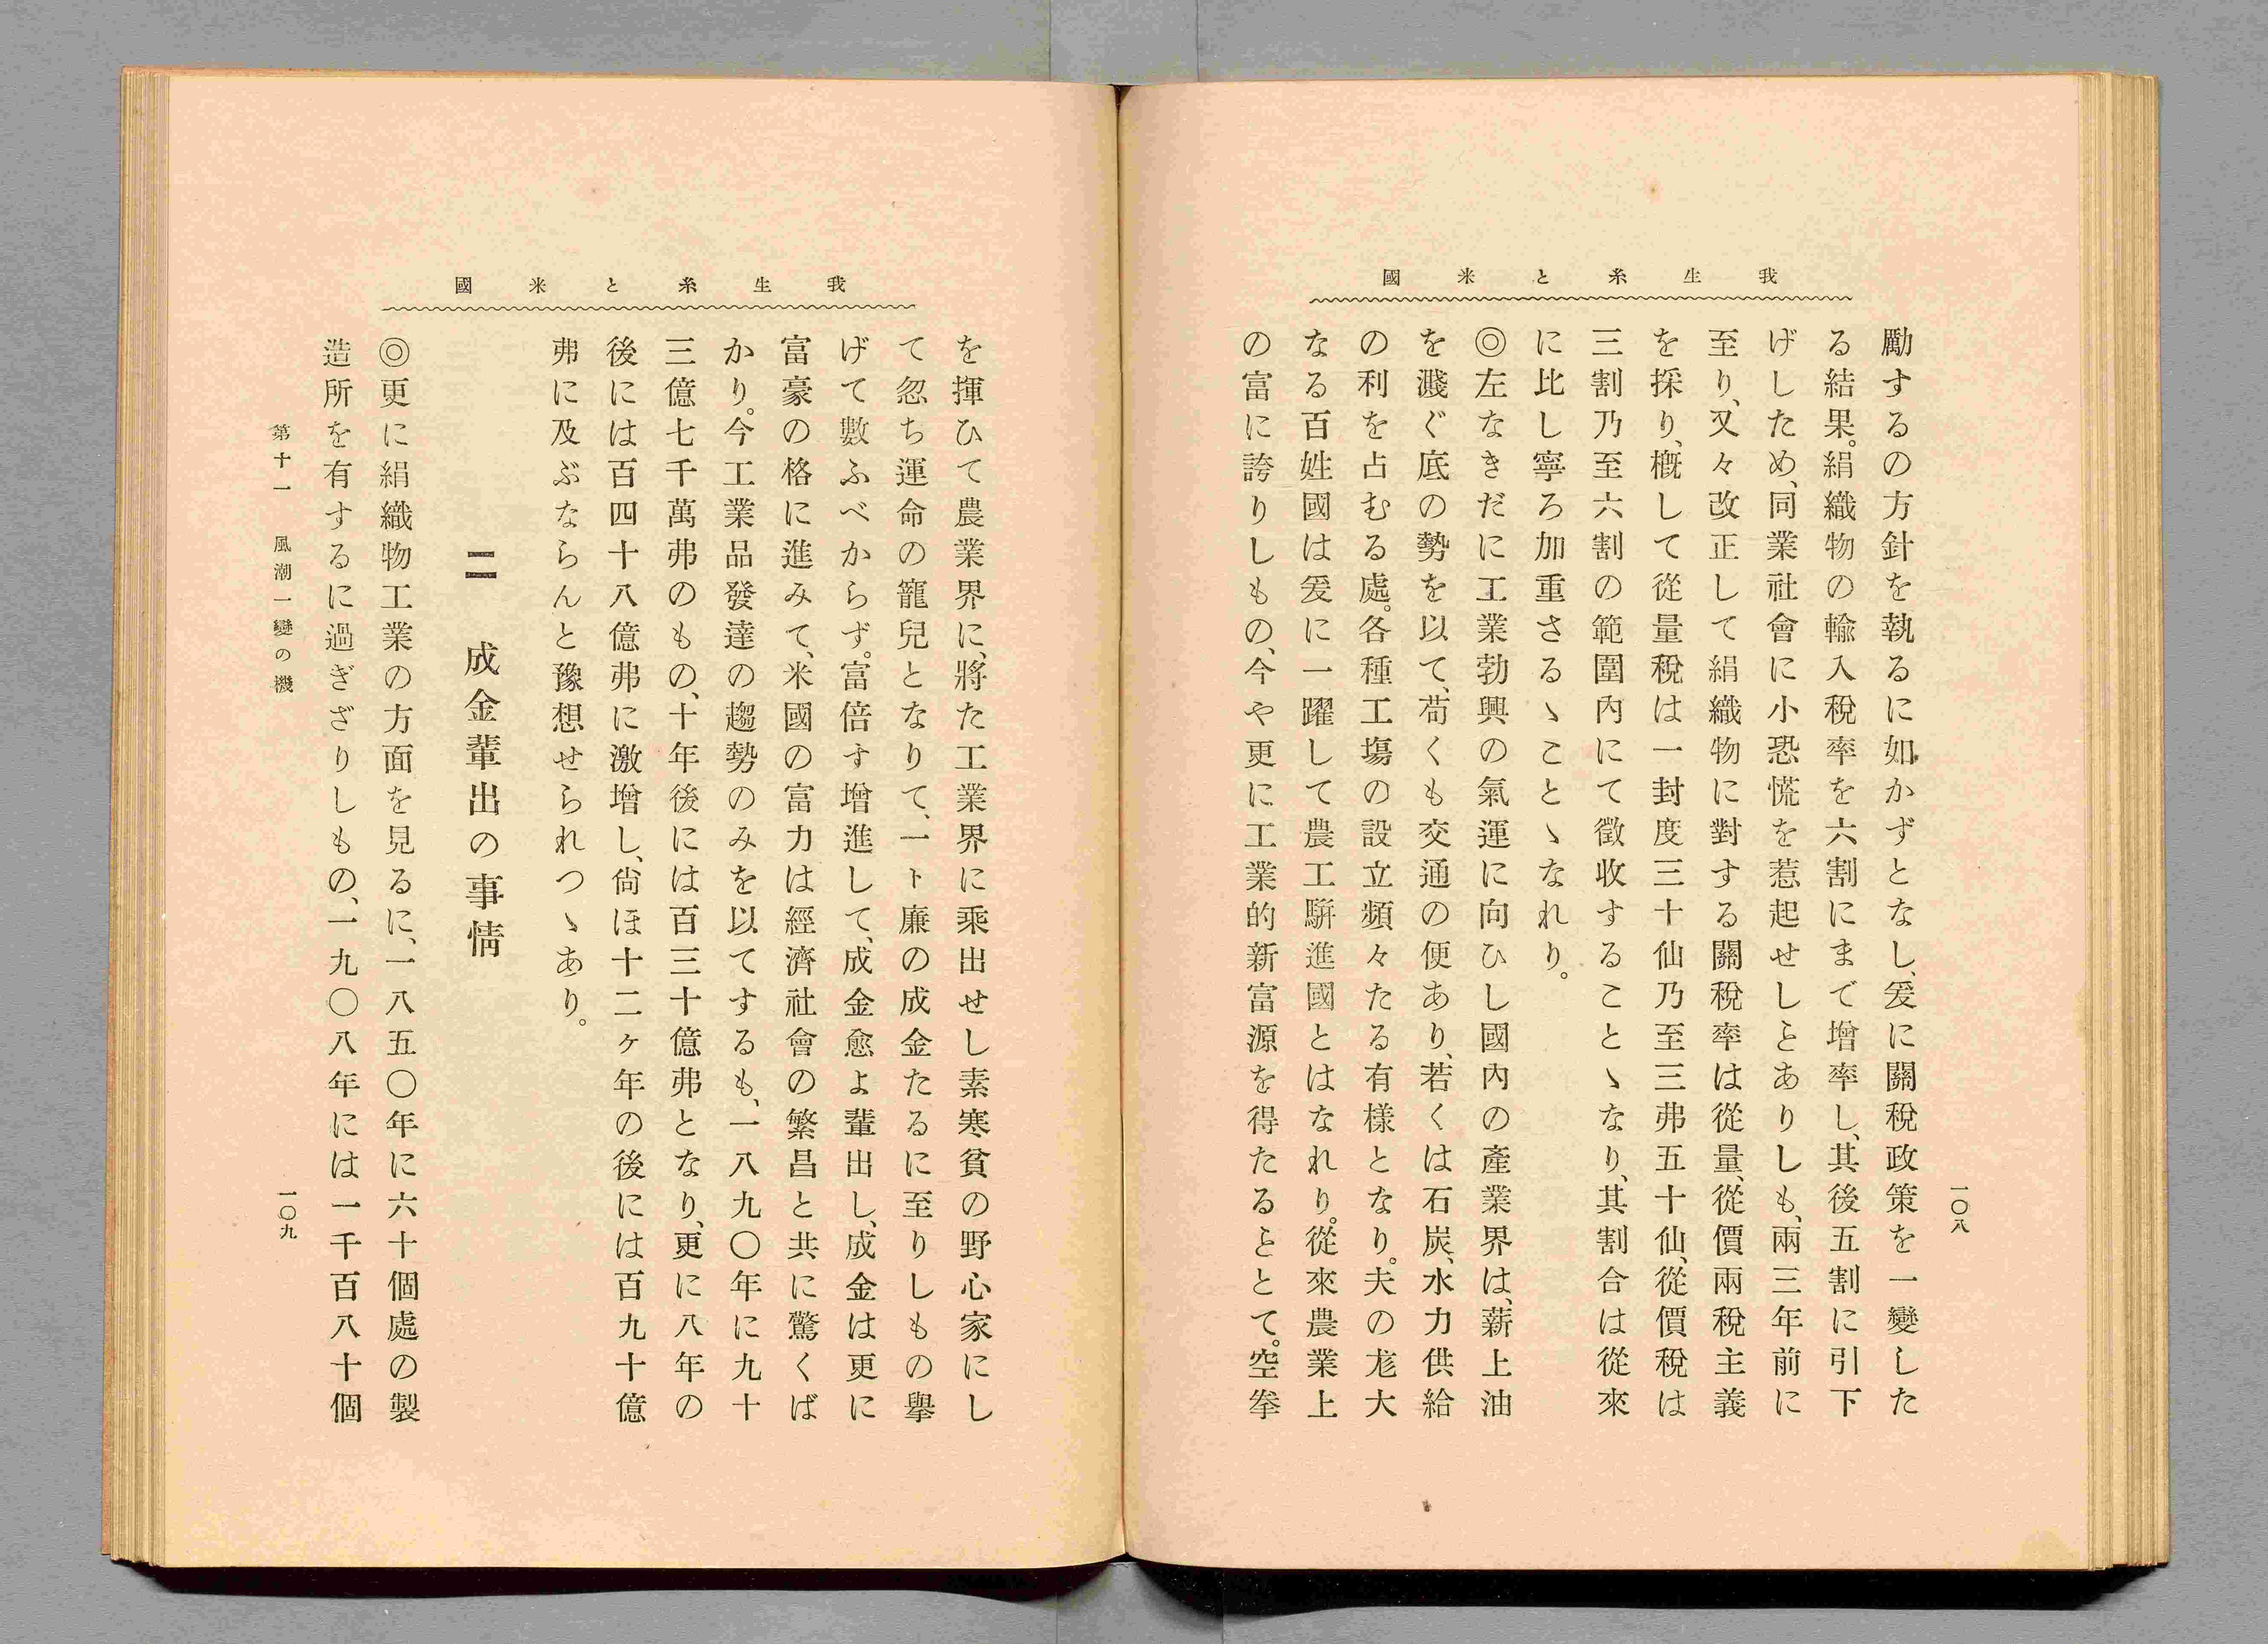 我生糸と米國
勵するの方針を執るに如かずとなし、爰に關稅政策を一變した
る結果。絹織物の輸入稅率を六割にまで增率し、其後五割に引下
げしため、同業社會に小恐慌を惹起せしとありしも、兩三年前に
至り、又々改正して絹織物に對する關稅率は從量、從價兩稅主義
を採り、槪して從量稅は一封度三十仙乃至三弗五十仙、從價稅は
三割乃至六割の範圍內にて徵收することゝなり、其割合は從來
に比し寧ろ加重さるゝことゝなれり。
◎左なきだに工業勃興の氣運に向ひし國內の產業界は、薪上油
を濺ぐ底の勢を以て、苟くも交通の便あり、若くは石炭、水力供給
の利を占むる處。各種工塲の設立頻々たる有樣となり。夫の尨大
なる百姓國は爰に一躍して農工駢進國とはなれり。從來農業上
の富に誇りしもの、今や更に工業的新富源を得たるととて。空拳
一〇八
我生糸と米國
を揮ひて農業界に、將た工業界に乘出せし素寒貧の野心家にし
て忽ち運命の寵兒となりて、一ト廉の成金たるに至りしもの擧
げて數ふべからず。富倍す增進して、成金愈よ輩出し、成金は更に
富豪の格に進みて、米國の富力は經濟社會の繁昌と共に驚くば
かり。今工業品發達の趨勢のみを以てするも、一八九〇年に九十
三億七千萬弗のもの、十年後には百三十億弗となり、更に八年の
後には百四十八億弗に激增し、尙ほ十二ヶ年の後には百九十億
弗に及ぶならんと豫想せられつゝあり。
二　成金輩出の事情
◎更に絹織物工業の方面を見るに、一八五〇年に六十個處の製
造所を有するに過ぎざりしもの、一九〇八年には一千百八十個
第十一　風潮一變の機
一〇九